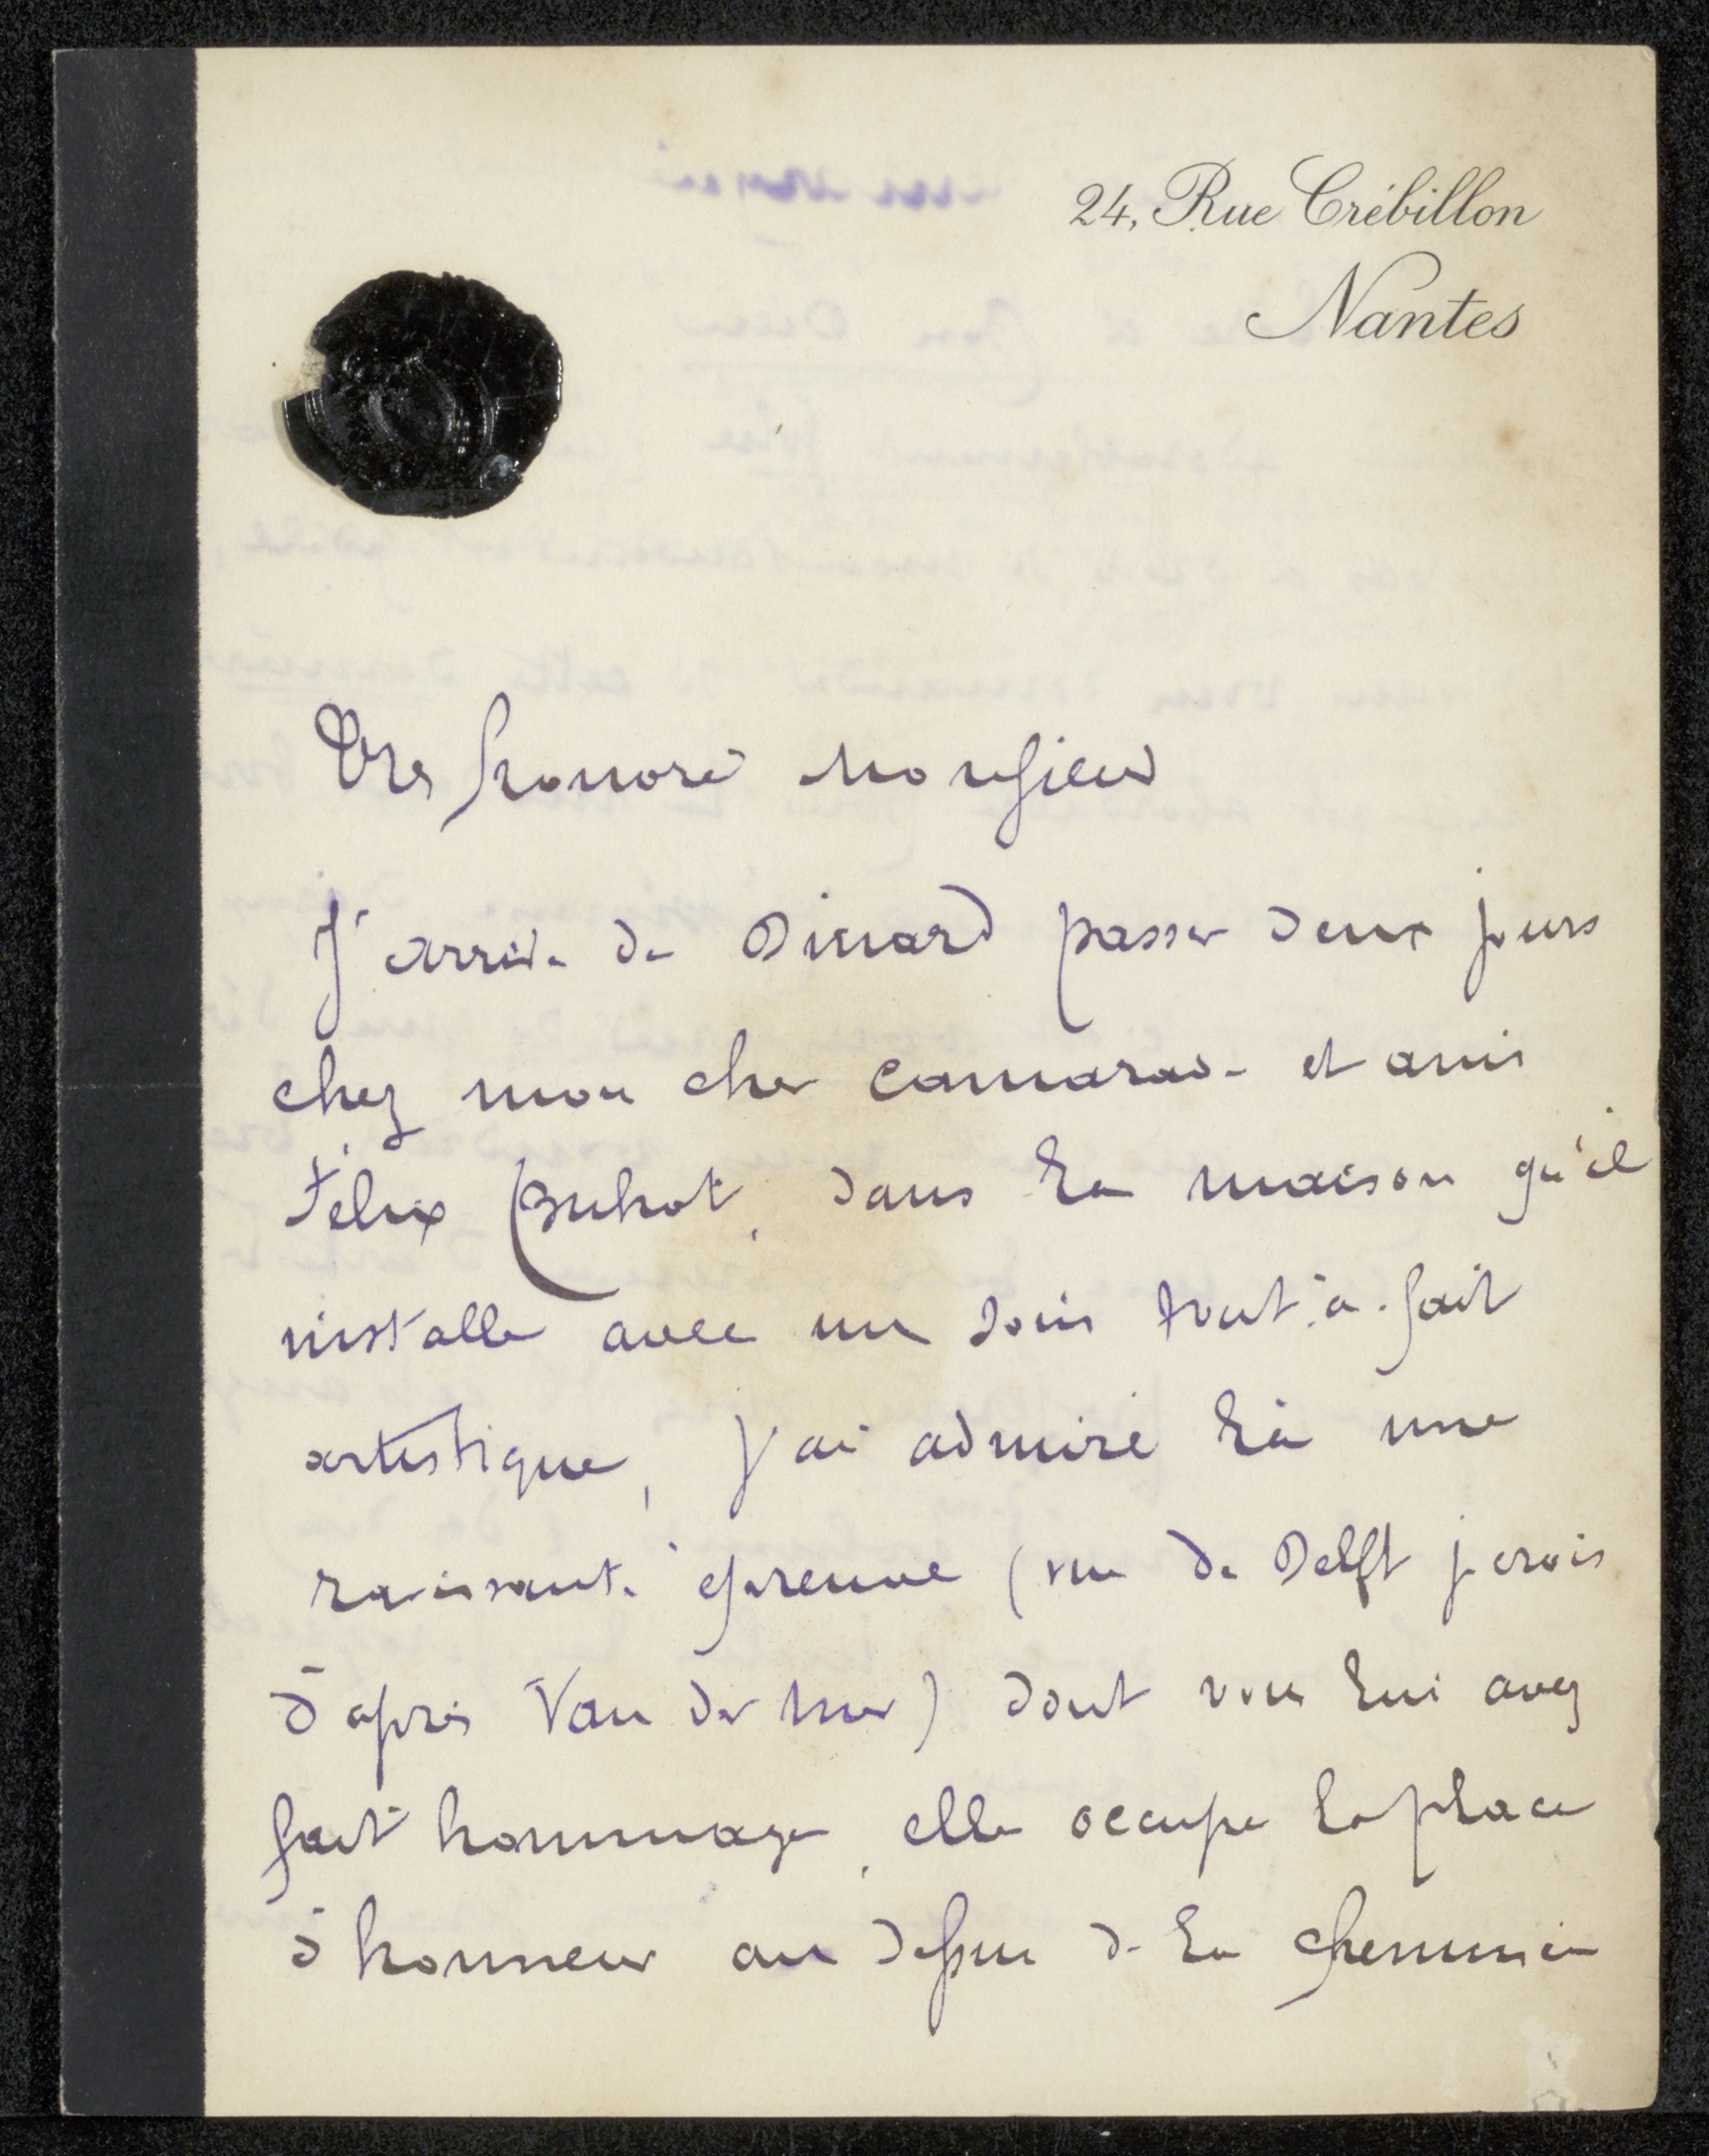 24, Rue Crébillon
Nantes
Très honoré Monsieur
J'arrive de Dinard passer deux jours
chez mon cher camarade et ami
Félix Buhot, dans la maison qu'il
installe avec un soin tout-à-fait
artistique, j'ai admiré là une
ravissante épreuve (vue de Delft je crois
d'après Van der Mer) dont vous lui avez
fait hommage, elle occupe la place
d'honneur au dessus de la cheminée